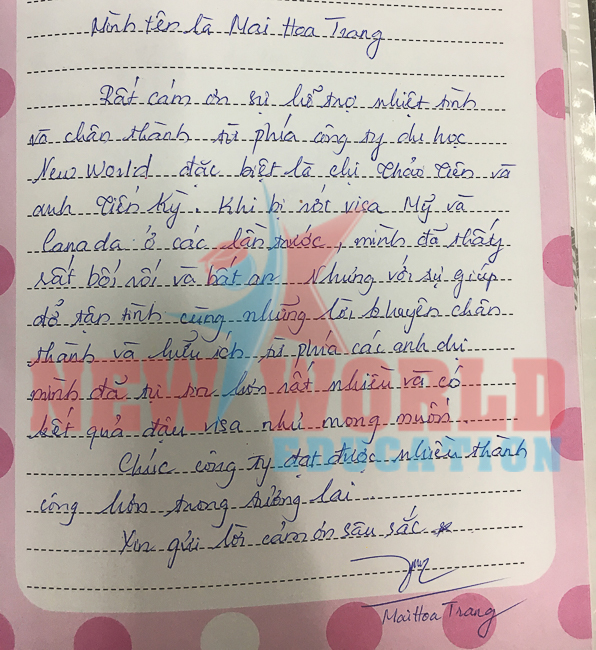 Mình tên là Mai Hoa Trang
Rất cám ơn sự hỗ trợ nhiệt tình
và chân thành từ phía công ty du học
New World đặc biệt là chị Thảo Tiên và
anh Tiến Kỳ. Khi bị rớt visa Mỹ và
Canada ở các lần trước, mình đã thấy
rất bối rối và bất an. Nhưng với sự giúp
đở tận tình cùng những lời khuyên chân
thành và hữu ích từ phía các anh chị
mình đã tự tin hơn rất nhiều và có
kết quả đậu visa như mong muốn.
Chúc công ty đạt được nhiều thành
công hơn trong tương lai.
Xin gửi lời cảm ơn sâu sắc
Mai Hoa Trang
NEW WORLD
EDUCATION